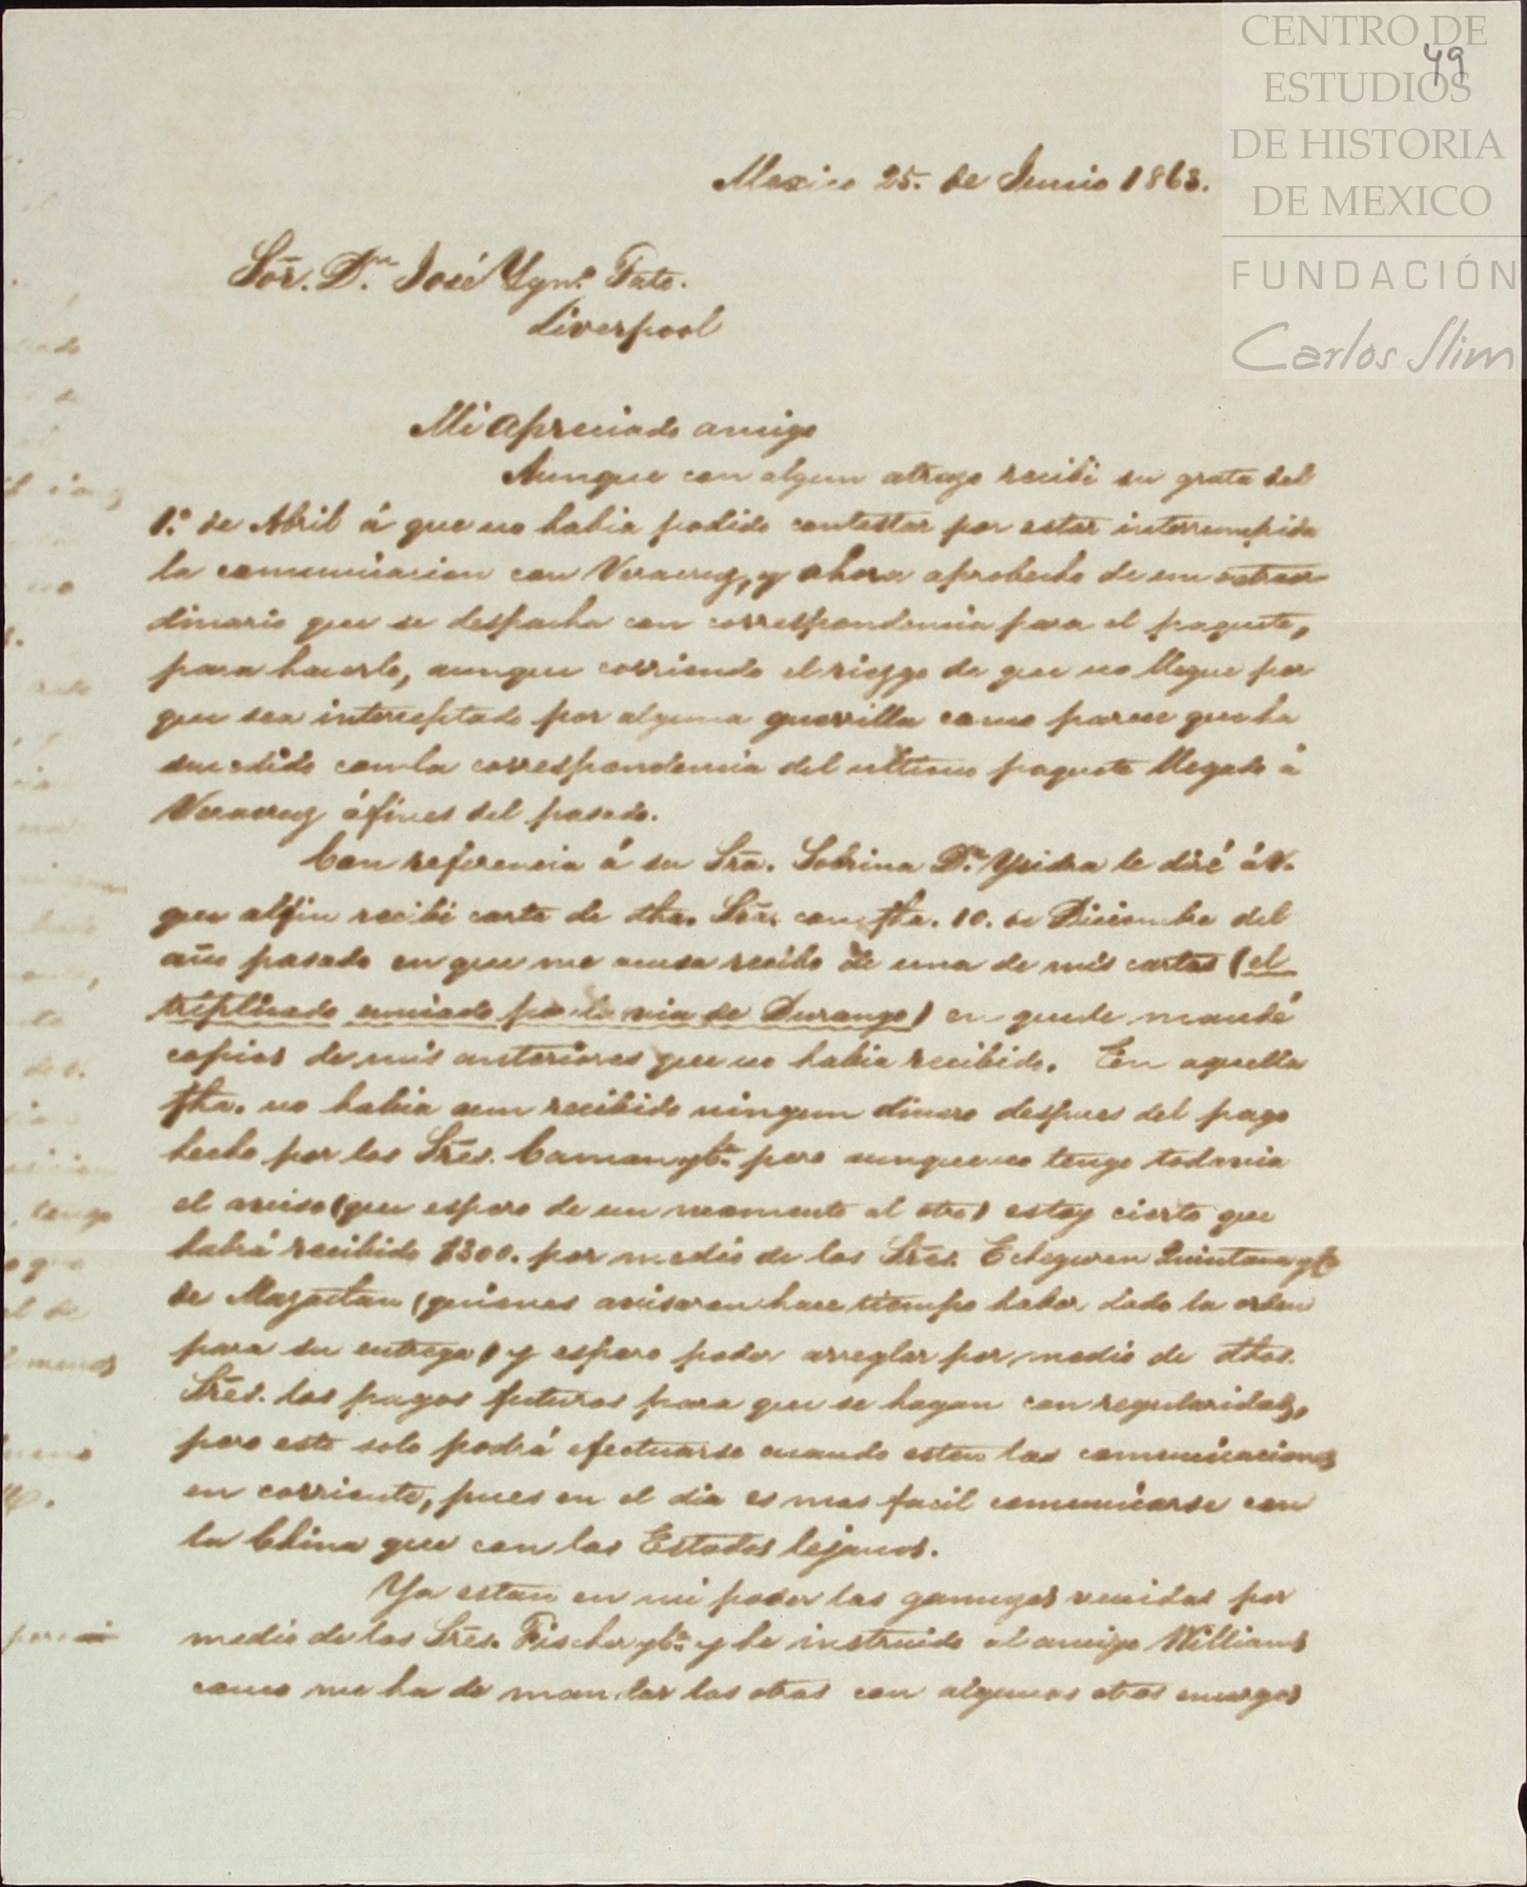 CENTRO DE
ESTUDIOS
DE HISTORIA
DE MEXICO
FUNDACIÓN
Carlos Slim
49
Mexico 25. de Junio 1863.
Sor. Dn. José Ygno. Tato.
Liverpool
Mi apreciado amigo
Aunque con algun atrazo recibi su grata del
1.º de Abril á que no habia podido contestar por estar interrumpida
la comunicacion con Veracruz, y ahora aprobecho de un estraor-
dinario que se despacha con correspondencia para el paquete,
para hacerlo, aunque corriendo el riezgo de que no llegue por
que sea interceptado por alguna guerrilla como parece que ha
sucedido con la correspondencia del ultimo paquete llegado á
Veracruz á fines del pasado.
Con referencia á su Sra. Sobrina Da. Ysidra le diré á V.
que al fin recibi carta de dha. Sra. con fha. 10. de Diciembre del
año pasado en que me acusa recibo de una de mis cartas (el
triplicado enviado por la via de Durango) en que le mandé
copias de mis anteriores que no habia recibido. En aquella
fha. no habia aun recibido ningun dinero despues del pago
hecho por los Sres. Caman y Ca. pero aunque no tengo todavia
el aviso (que espero de un momento al otro) estoy cierto que
habrá recibido $300. por medio de los Sres. Echeguren Quintana y Ca
de Mazatlan (quienes avisaron hace tiempo haber dado la orden
para su entrega) y espero poder arreglar por medio de dhos.
Sres. los pagos futuros para que se hagan con regularidad,
pero esto solo podrá efectuarse cuando esten las comunicaciones
en corriente, pues en el dia es mas facil comunicarse con
la China que con los Estados lejanos.
Ya estan en mi poder las gamuzas venidas por
medio de los Sres. Fischer y Ca. y he instruido al amigo Williams
como me ha de mandar las otras con algunos otros encargos